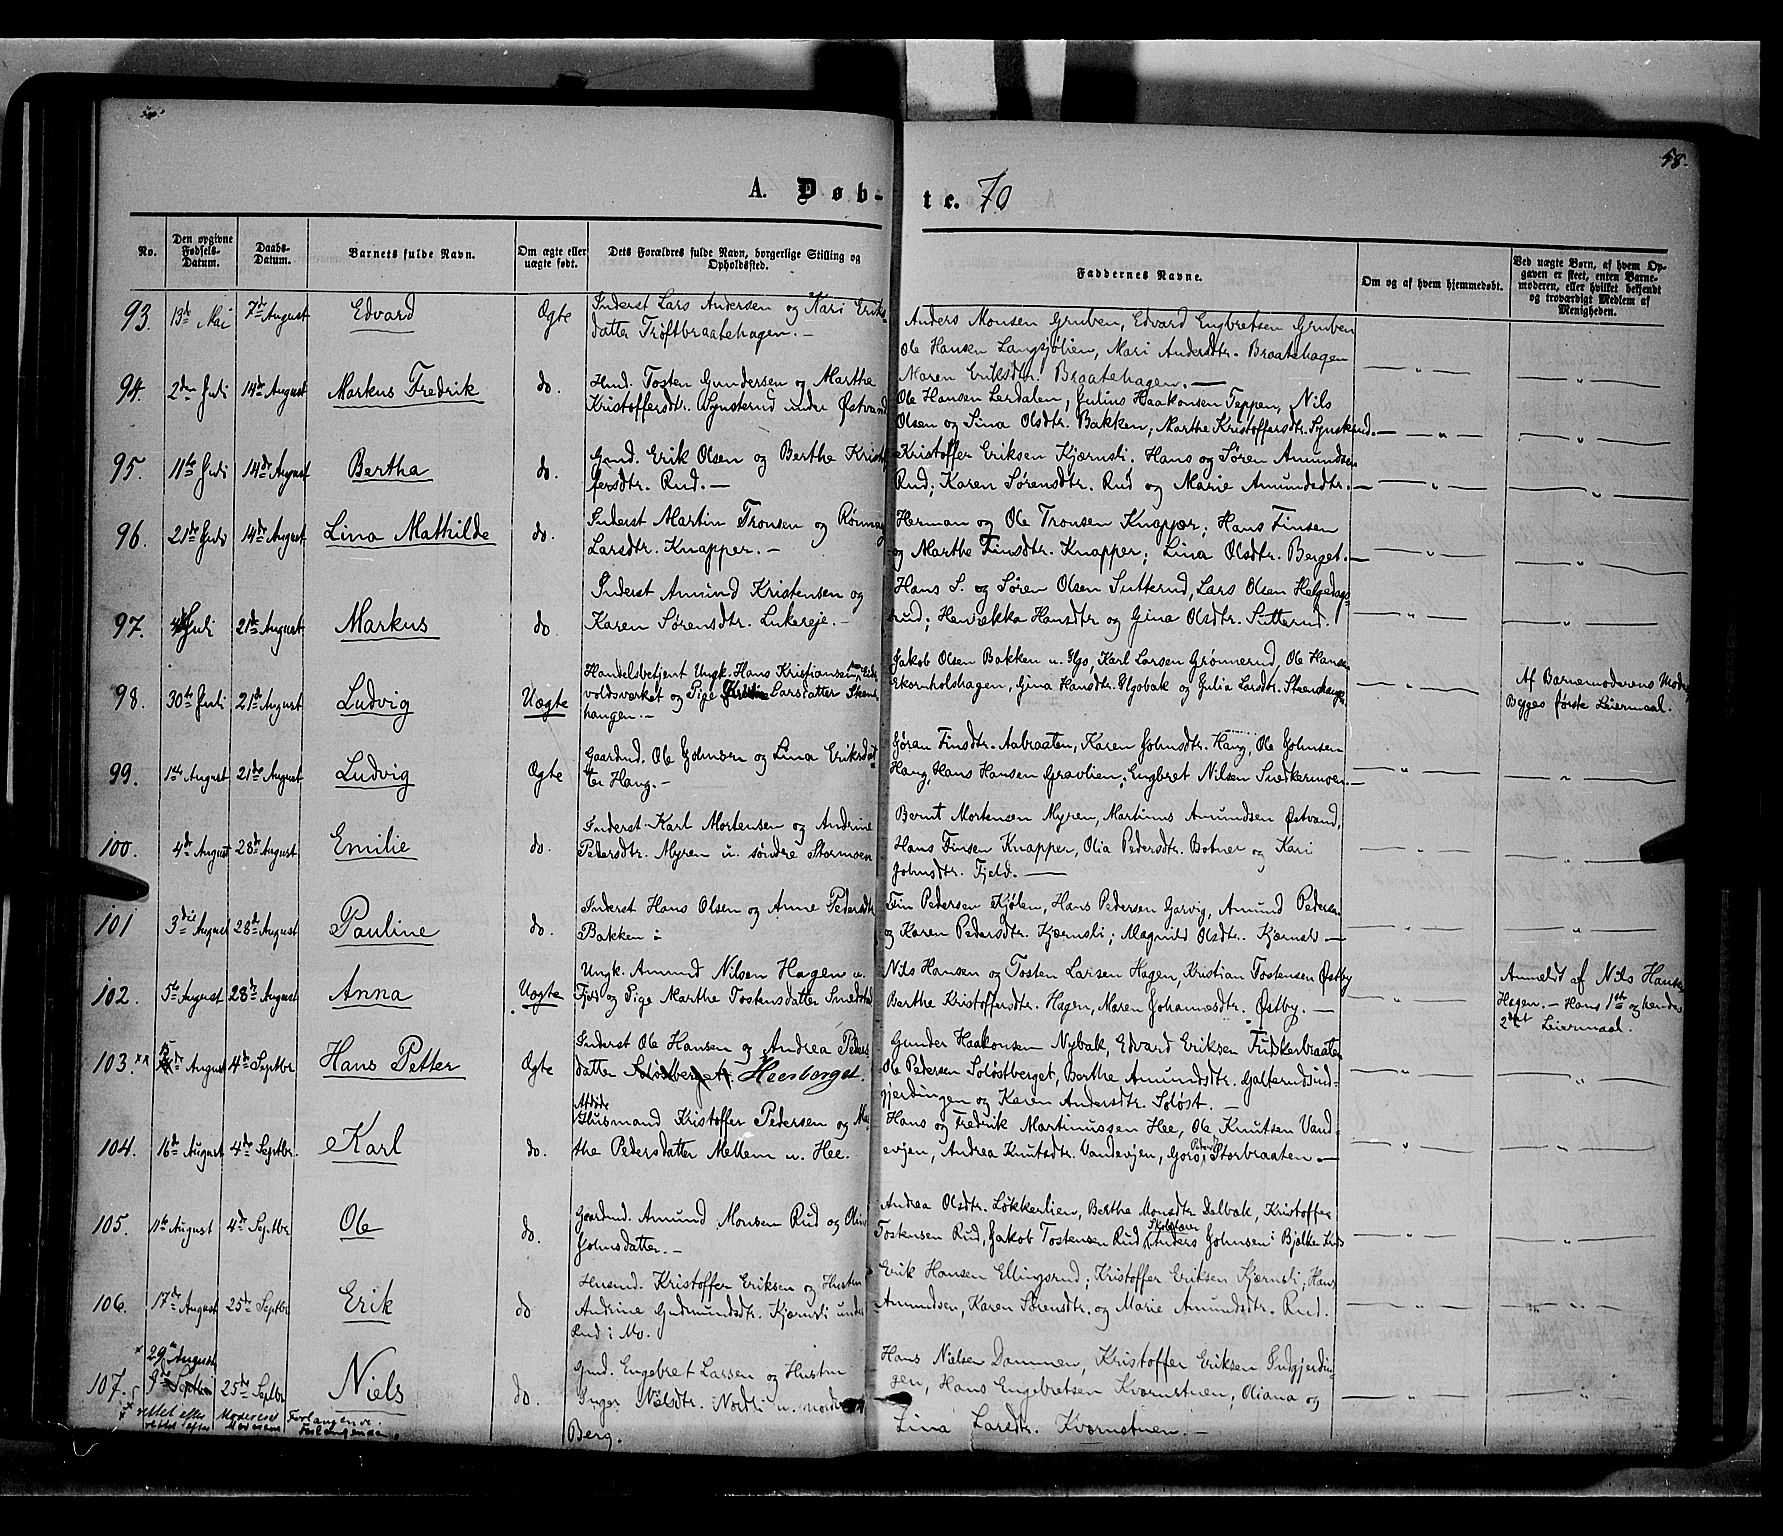 58.
A. Døb-te. 70
No.
Den opgivne Fødsels-Datum.
Daabs-Datum.
Barnets fulde Navn.
Om ægte eller uægte født.
Dets Forældres fulde Navn, borgerlige Stilling og Opholdssted.
Faddernes Navne.
Om og af hvem hjemmedøbt.
Ved uægte Børn, af hvem Opgaven er skeet, enten Barnemoderen, eller hvilket bekjendt og troværdigt Medlem af Menigheden.
93. 13de Mai 7de August Edvard Ægte
Inderst Lars Andersen og Kari Eriksdatter Trøftbraatehagen. —
Anders Monsen Gruben, Edvard Engbretsen Gruben
Ole Hansen Langsjølien, Mari Andersdtr. Braatehagen
Maren Eriksdtr. Braatehagen. —
94. 2den Juli 14de August Markus Fredrik do.
Husd. Tosten Gundersen og Marthe
Kristoffersdtr. Synsterud undre Østvand
Ole Hansen Lerdalen, Julius Haakonsen Teppen, Nils
Olsen og Lina Olsdtr. Bakken; Marthe Kristoffersdtr. Synsterud. —
95. 11te Juli 14de August Bertha do.
Gmd. Erik Olsen og Berthe Kristoffersdtr. Rud. —
Kristoffer Eriksen Kjærnsli. Hans og Søren Amundsen
Rud; Karen Sørensdtr. Rud og Marie Amundsdtr. —
96. 21de Juli 14de August Lina Mathilde do.
Inderst Martin Tronsen og Rønnaug
Larsdtr. Knapper. —
Herman og Ole Tronsen Knapper; Hans Finsen
og Marthe Finsdtr. Knapper; Lina Olsdtr. Berget. —
97. Juli 21de August Markus do.
Inderst Amund Kristensen og
Karen Sørensdtr. Lukereje. —
Hans S. og Søren Olsen Sutterud, Lars Olsen Helgedags-
rud; Henrikka Hansdtr og Gina Olsdtr. Sutterud.
98. 30te Juli 21de August Ludvig Uægte
Handelsbetjent Ungk. Hans Kristiansen Eids-
voldsværket og Pige Larsdatter Steens-
hangen. —
Jakob Olsen Bakken u. Algo, Karl Larsen Grønnerud, Ole Hansen
Ekornholshagen, Gina Hansdtr. Algobak og Julia Larsdtr. Steenshangen
Af Barnemoderens Moder
Begges første Leiermaal.
99. 1ste August 21de August Ludvig Ægte
Gaardmd. Ole Johnsen og Lina Eriksdat-
ter Haug. —
Gøran Finsdtr. Aabraaten, Karen Johnsdtr. Haug, Ole Johnsen
Haug, Hans Hansen Gravlien; Engbret Nilsen Snedkermoen. —
100. 4de August 28de August Emilie do.
Inderst Karl Mortensen og Andrine
Pedersdtr. Myren u. søndre Stormoen
Bernt Mortensen Myren, Martinus Amundsen Østvand,
Hans Finsen Knapper, Olia Pedersdtr. Botner og Kari
Johnsdtr. Fjeld. —
101 3die August 28de August Pauline do.
Inderst Hans Olsen og Anne Pedersdtr
Bakken
Fin Pedersen Kjølen, Hans Pedersen Garvig, Amund Pedersen
og Karen Pedersdtr. Kjærnsli; Magnild Olsdtr. Kjærnsli —
102. 5te August 28de August Anna Uægte
Ungk. Amund Nilsen Hagen u.
Fjeld og Pige Marthe Tostensdatter Smedstad
Nils Hansen og Tosten Larsen Hagen, Kristian Tostensen Østby
Berthe Kristoffersdtr. Hagen, Maren Johannesdtr. Østby. —
Anmeldt af Nils Hansen
Hagen. — Hans 1ste og hendes
2det Leiermaal.
103. xx August 4de Septbr Hans Petter Ægte
Inderst Ole Hansen og Andrea Peders-
datter Soløstberget Heesberget.
Gunder Haakonsen Nybak, Edvard Eriksen Fuskerbraaten
Ole Pedersen Soløstberget, Berthe Amundsdtr. Galterudsind-
gjerdingen og Karen Andersdtr. Soløst. —
104. 16de August 4de Septbr. Karl do.
Afdøde
Husmand Kristoffer Pedersen og Mar-
the Pedersdatter Mellem u. Hee.
Hans og Fredrik Martinussen Hee, Ole Knutsen Vand-
evjen, Andrea Knutsdtr. Vandevjen, Goro Pedersdtr Storbraaten —
105. 11te August 4de Septbr Ole do.
Gaardmd. Amund Monsen Rud og Olia
Johnsdatter. —
Andrea Olsdtr. Løkkerlien, Berthe Monsdtr. Dalbak, Kristoffer
Tostensen Rud, Jakob Tostensen Rud, Skolelærer Anders Johnsen
106. 17de August 25de Septbr Erik do
Husmd. Kristoffer Eriksen og Hustru
Andrine Gudmundsdtr. Kjærnsli under
Rud i Mo.
Erik Hansen Ellingsrud; Kristoffer Eriksen Kjærnsli; Hans
Amundsen, Karen Sørensdtr. og Marie Amundsdtr. Rud.
107. x 29de August 9de Septbr 25de Septbr Niels do.
Gmd. Engebret Larsen og Hustru
Inger Nilsdtr. Nordli u. nordre
Berg.
Hans Nielsen Dammen, Kristoffer Eriksen Indgjerdin-
gen, Hans Engebretsen Kværnstuen, Oliana og
Lina Larsdtr. Kværnstuen. —
x rettet efter Moderens Forlangende.
x rettet efter Moderens Forlangende.